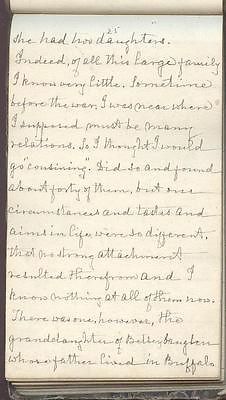 25
she had two daughters.
Indeed, of all this large family
I know very little. Sometime
before the war, I was near where
I supposed must be many
relations. So I thought I would
go "cousining". Did so and found
about forty of them, but our
circumstances and tastes and
aims in life were so different,
that no strong attachment
resulted therefrom and I
know nothing at all of them now.
There was one, however, the
granddaughter of Betsey
whose father lived in Buffalo